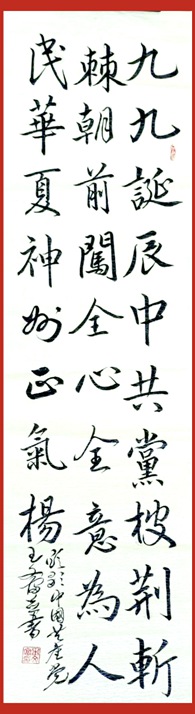 九九誕辰中共黨披荆斬
棘朝前闖全心全意為人
民華夏神州正氣楊
中國共產党